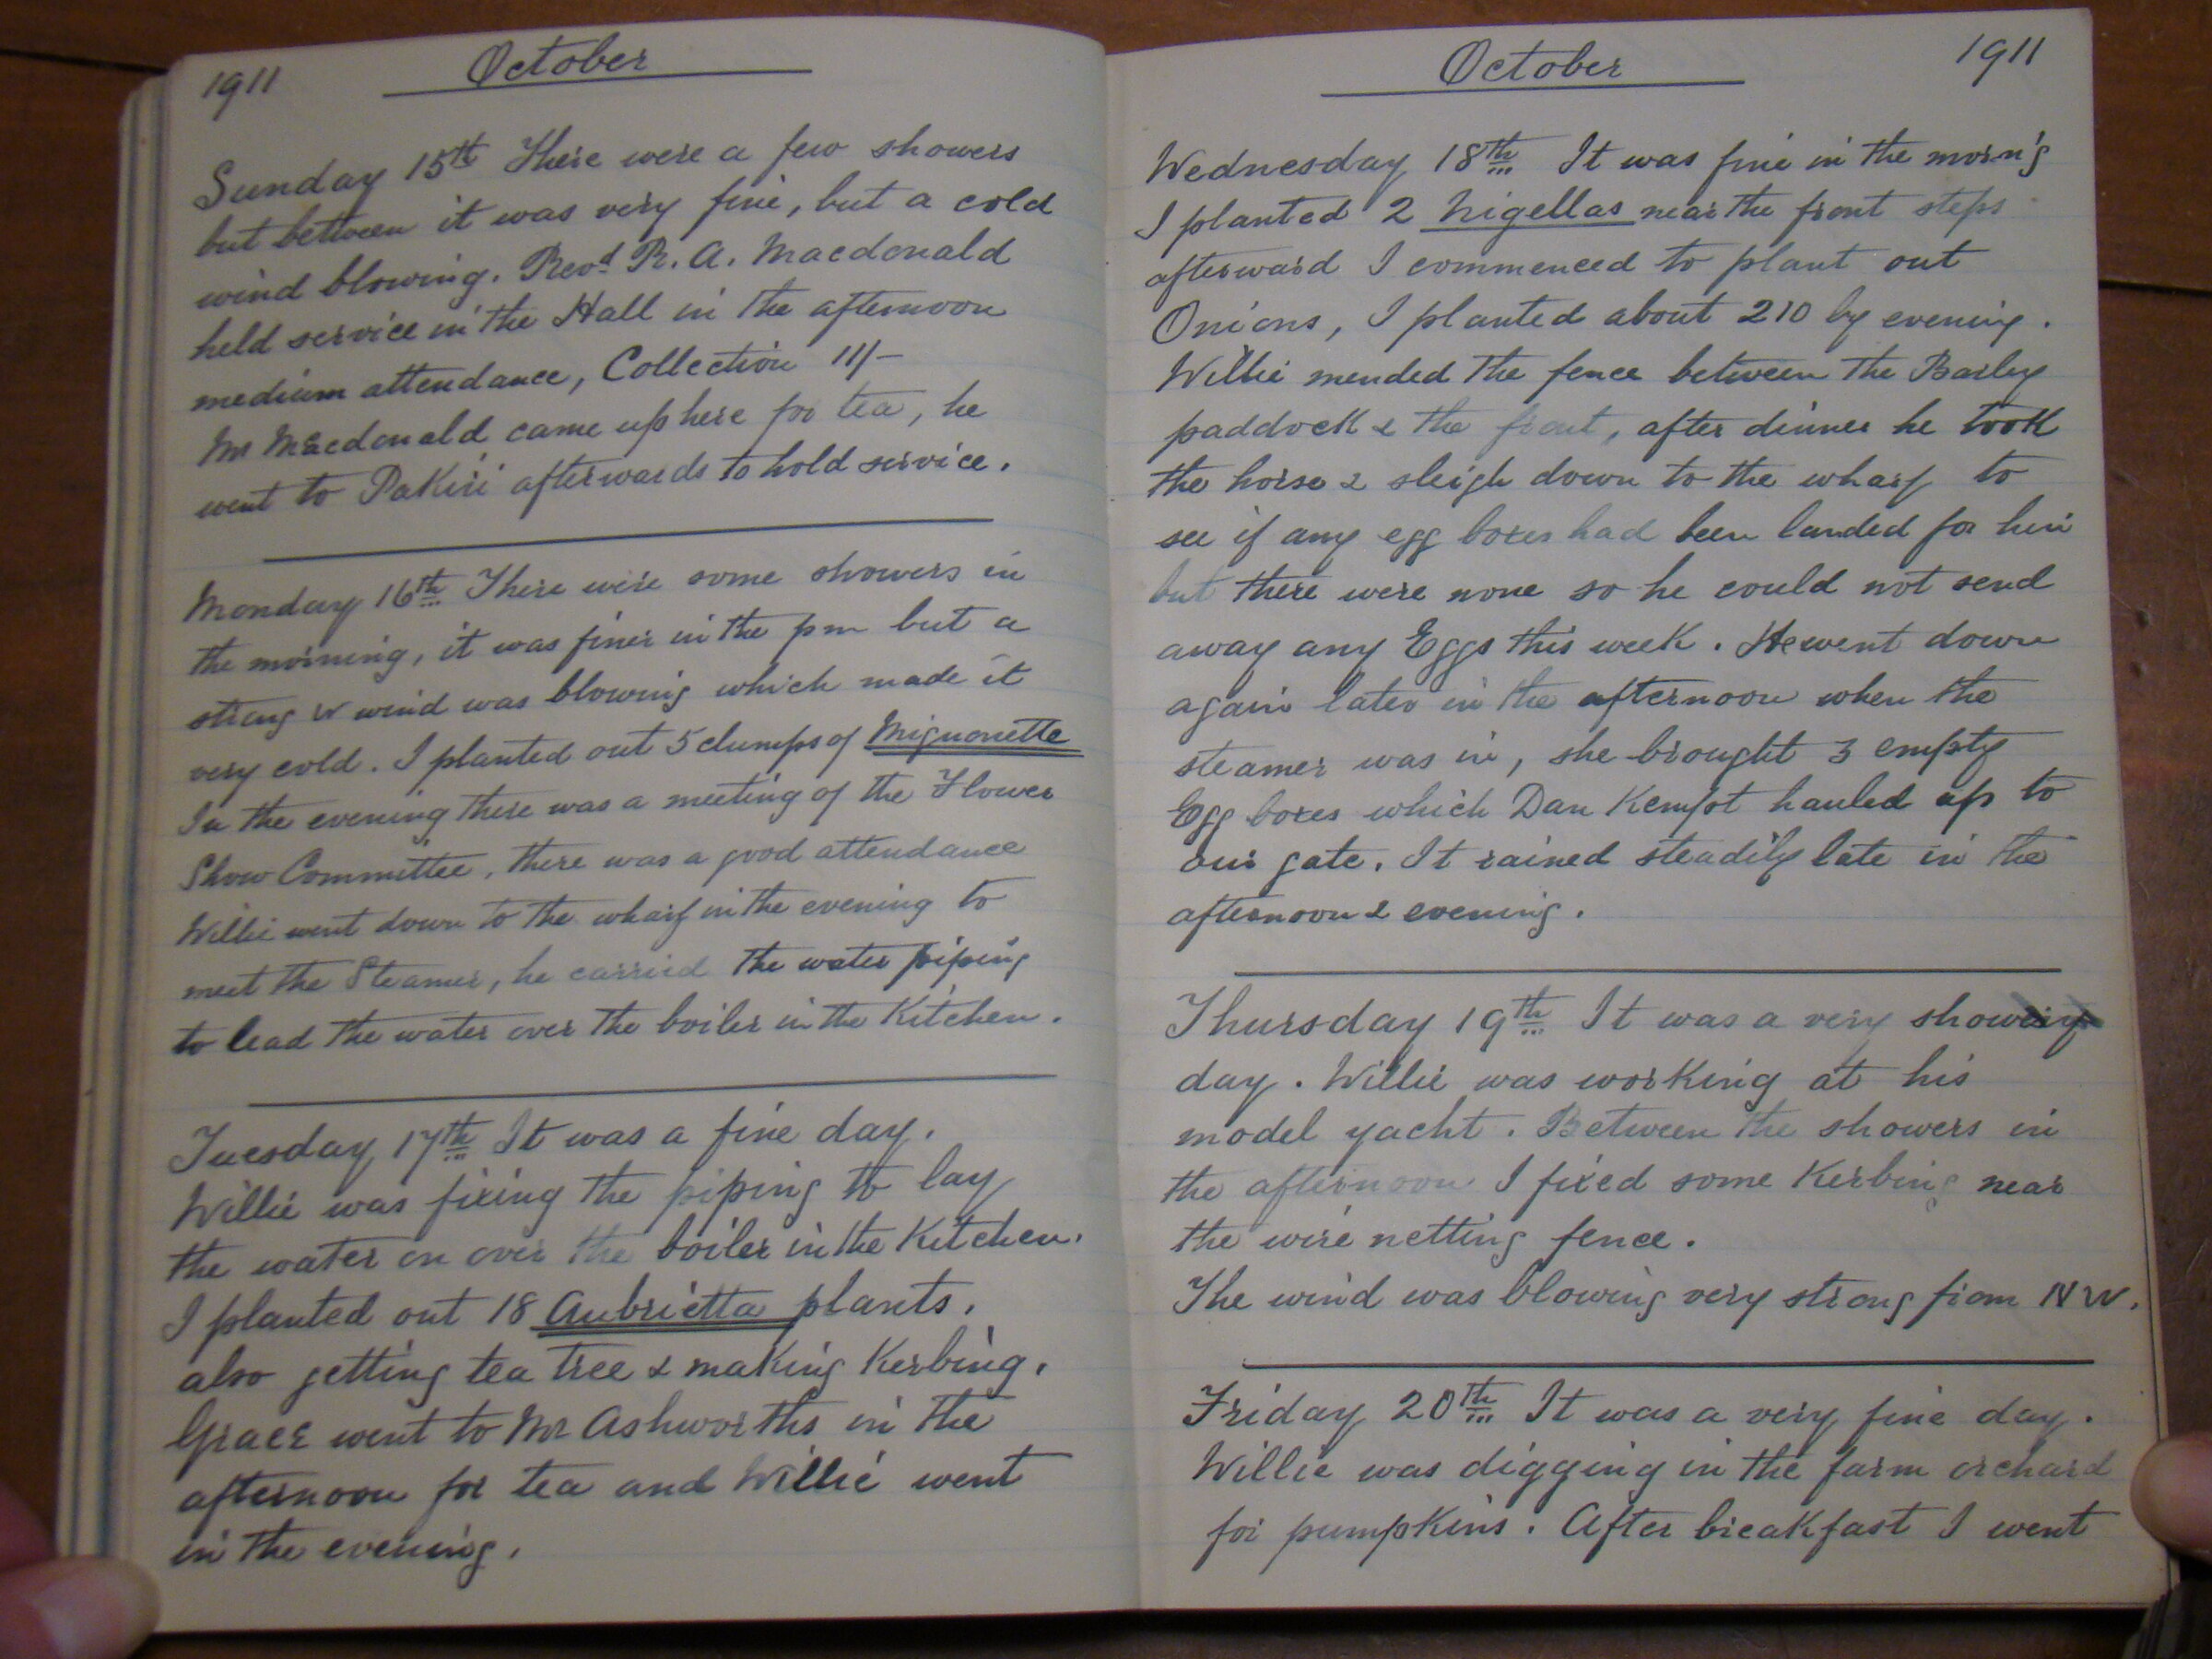 1911 October
Sunday 15th There were a few showers
but between it was very fine, but a cold
wind blowing. Revd R. A. Macdonald
held service in the Hall in the afternoon
medium attendance, Collection 11/-
Mr Macdonald came up here for tea, he
went to Pakiri afterwards to hold service.
Monday 16th There were some showers in
the morning, it was finer in the pm but a
strong W wind was blowing which made it
very cold. I planted out 5 clumps of Mignonette
In the evening there was a meeting of the Flower
Show Committee, there was a good attendance
Willie went down to the wharf in the evening to
meet the Steamer, he carried the water piping
to lead the water over the boiler in the Kitchen.
Tuesday 17th It was a fine day.
Willie was fixing the piping to lay
the water on over the boiler in the Kitchen.
I planted out 18 Aubrietta plants.
also getting tea tree & making Kerbing.
Grace went to Mr Ashworths in the
afternoon for tea and Willie went
in the evening.
October 1911
Wednesday 18th It was fine in the morn'g
I planted 2 Nigellas near the front steps
afterward I commenced to plant out
Onions, I planted about 210 by evening.
Willie mended the fence between the Barley
paddock & the front, after dinner he took
the horse & sleigh down to the wharf to
see if any egg boxes had been landed for him
but there were none so he could not send
away any Eggs this week. He went down
again later in the afternoon when the
steamer was in, she brought 3 empty
Egg boxes which Dan Kempt hauled up to
our gate. It rained steadily late in the
afternoon & evening.
Thursday 19th It was a very showery
day. Willie was working at his
model yacht. Between the showers in
the afternoon I fixed some Kerbing near
the wire netting fence.
The wind was blowing very strong from NW.
Friday 20th It was a very fine day.
Willie was digging in the farm orchard
for pumpkins. After breakfast I went